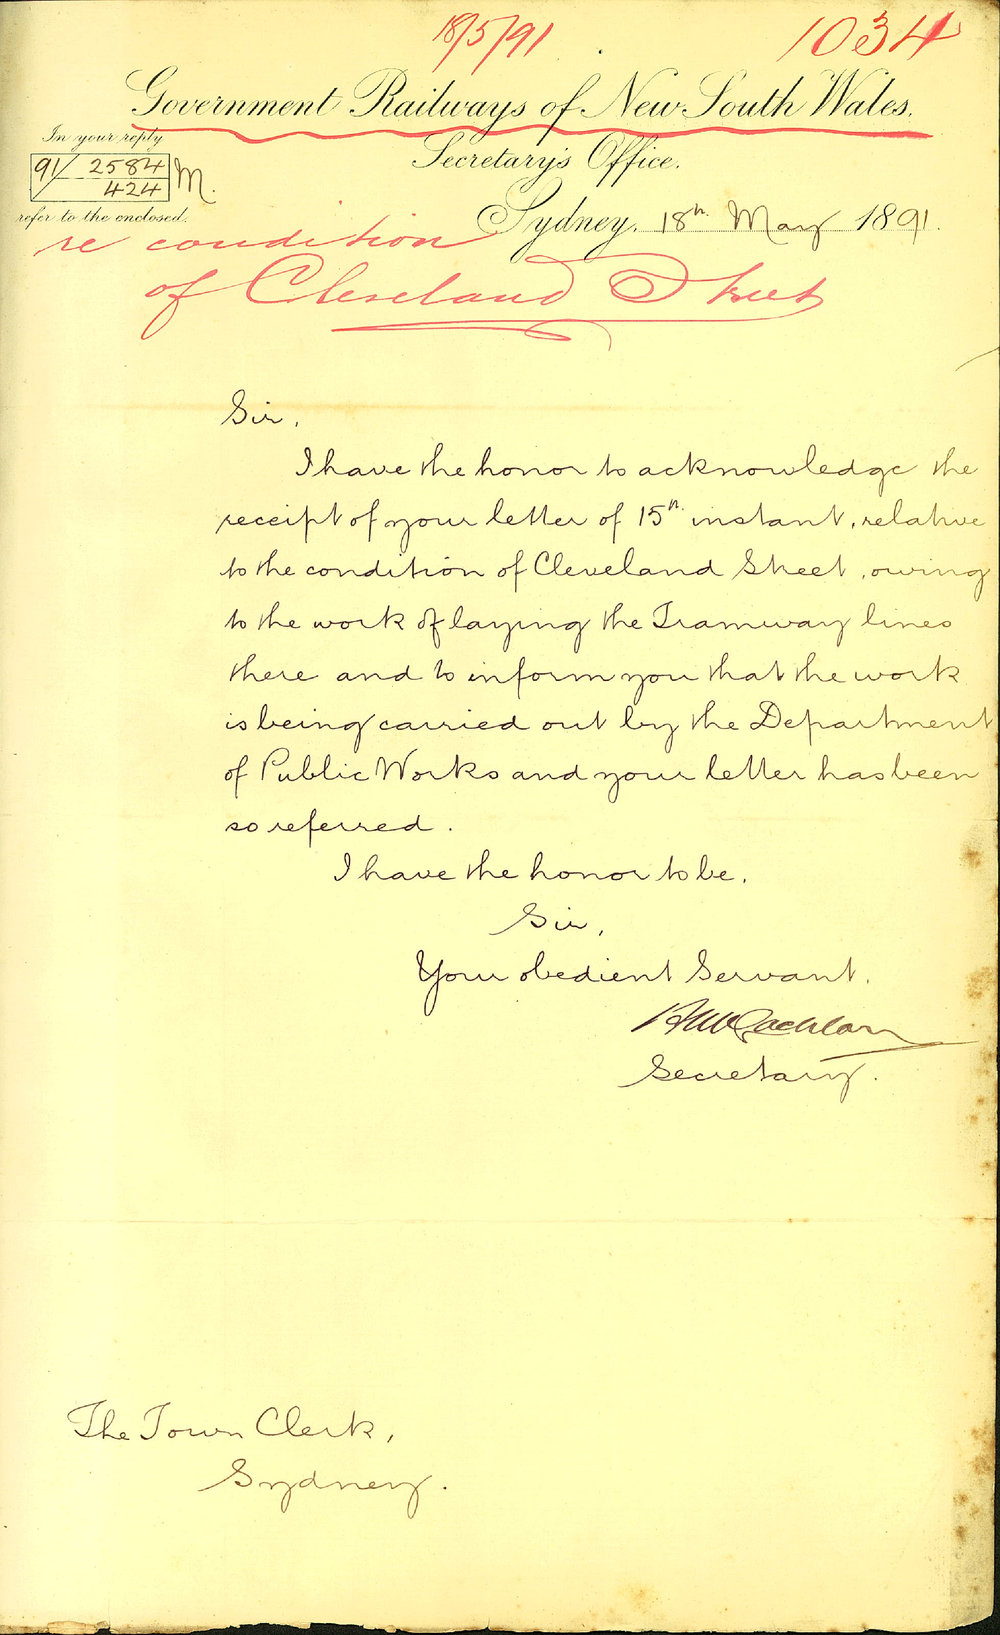 18/5/91
1034
Government Railways of New South Wales.
In your reply
Secretary's Office.
91/2584 M.
424
refer to the enclosed.
Sydney, 18th May 1891.
re condition
of Cleveland Street
Sir,
I have the honor to acknowledge the
receipt of your letter of 15th instant, relative
to the condition of Cleveland Street, owing
to the work of laying the Tramway lines
there and to inform you that the work
is being carried out by the Department
of Public Works and your letter has been
so referred.
I have the honor to be,
Sir,
Your obedient Servant.
H McLachlan
Secretary.
The Town Clerk,
Sydney.